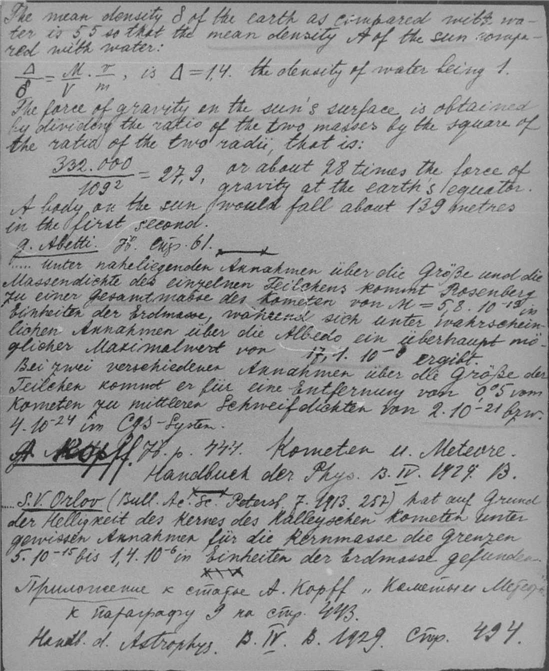 The mean density δ of the earth as compared with wa-
ter is 5,5 so that the mean density Δ of the sun compa-
red with water:
Δ/δ = M/V · v/m, is Δ = 1,4. the density of water being 1.
The force of gravity on the sun's surface is obtained
by dividing the ratio of the two masses by the square of
the ratio of the two radii, that is:
332.000/109² = 27,9, or about 28 times the force of
gravity at the earth's equator.
A body on the sun would fall about 139 metres
in the first second.
G. Abetti. стр. 61.
..... unter naheliegenden Annahmen über die Größe und die
Massendichte des einzelnen Teilchens kommt Rosenberg
zu einer Gesamtmasse des Kometen von M = 5,8 . 10⁻¹³ in
Einheiten der Erdmasse, während sich unter wahrschein-
lichen Annahmen über die Albedo ein überhaupt mö-
glicher Maximalwert von 17,1. 10⁻⁹ ergibt.
Bei zwei verschiedenen Annahmen über die Größe der
Teilchen kommt er für eine Entfernung von 0°5 vom
Kometen zu mittleren Schweifdichten von 2.10⁻²¹ bzw.
4.10⁻²⁴ im CGS-System.
A. Kopff. p. 447. Kometen u. Meteore.
Handbuch der Phys. B. IV. 1929. B.
.... S.V Orlov (Bull. Ac. Sc. Petersb. 7. 1913. 257) hat auf Grund
der Helligkeit des Kernes des Halleyschen Kometen unter
gewissen Annahmen für die Kernmasse die Grenzen
5.10⁻¹⁵ bis 1,4.10⁻⁶ in Einheiten der Erdmasse gefunden
Приложение к статье A. Kopff „Кометы и Метеоры
к параграфу 9 на стр. 443.
Handb. d. Astrophys. B. IV. B. 1929. Стр. 494.